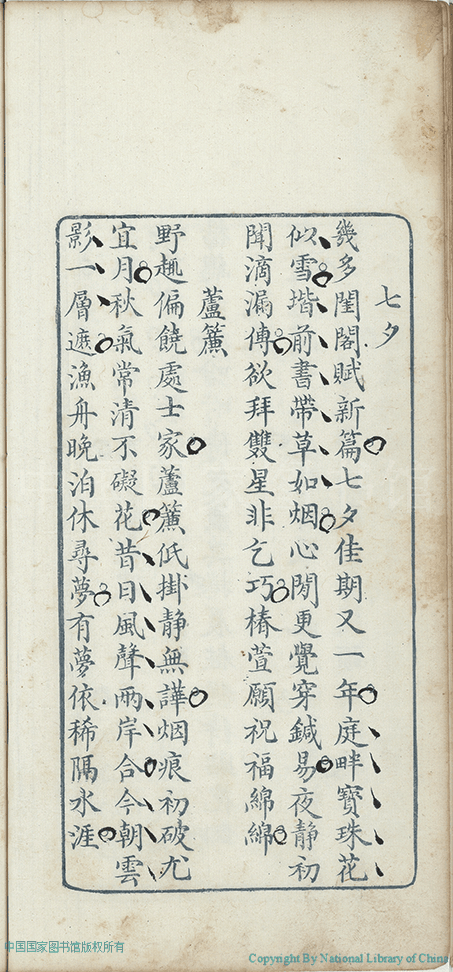 七夕
幾多閨閣賦新篇七夕佳期又一年庭畔寶珠花
似雪堦前書帶草如烟心閒更覺穿鍼易夜静初
聞滴漏傳欲拜雙星非乞巧椿萱願祝福綿綿
蘆簾
野趣偏饒處士家蘆簾低掛静無譁烟痕初破尤
宜月秋氣常清不礙花昔日風聲兩岸合今朝雲
影一層遮漁舟晚泊休尋夢有夢依稀隔水涯
中国国家图书馆版权所有
Copyright By National Library of China